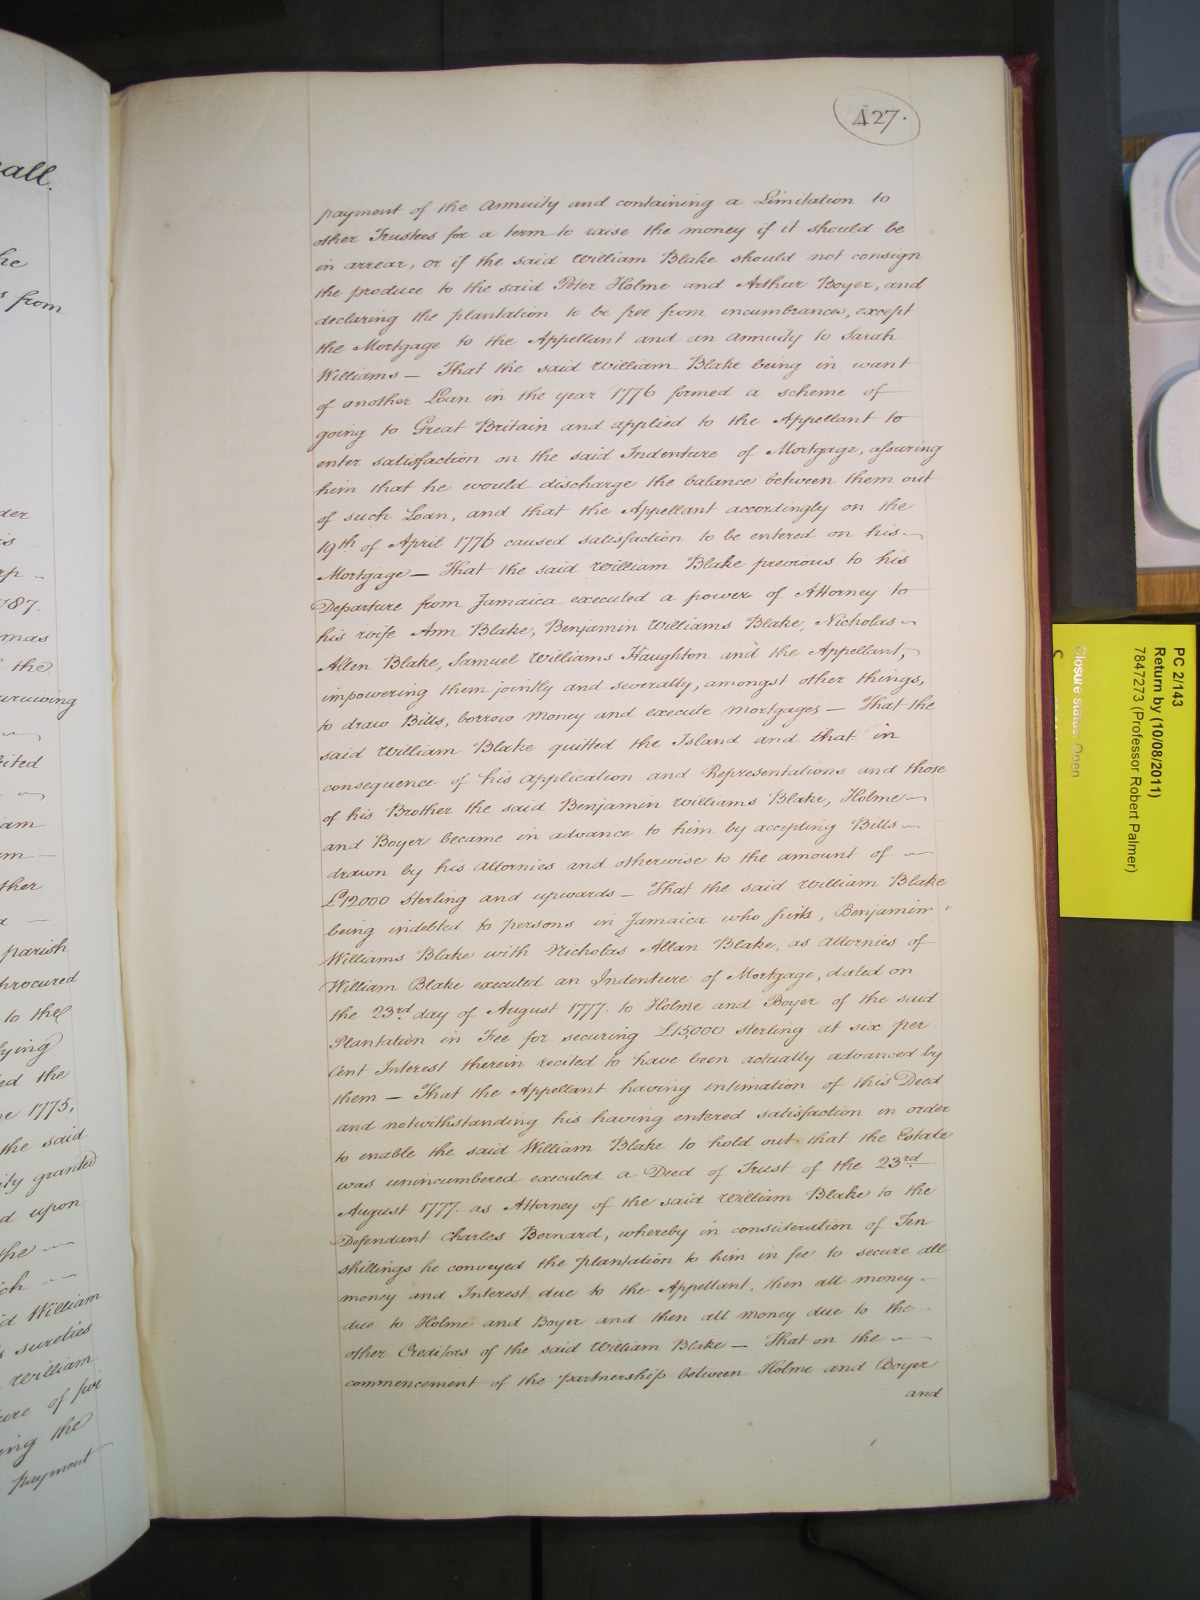 all.
he
s from
der
is
rp -
787.
mas
f the
urviving
ited
am
m -
ther
d -
parish
procured
to the
fying
ed the
ne 1775,
the said
ity granted
d upon
the -
ich -
id William
s sureties
William
ure of five
ing the
payment
427.
payment of the Annuity and containing a Limitation to
other Trustees for a term to raise the money if it should be
in arrear, or if the said William Blake should not consign
the produce to the said Peter Holme and Arthur Boyer, and
declaring the plantation to be free from incumbrances, except
the Mortgage to the Appellant and an Annuity to Sarah
Williams — That the said William Blake being in want
of another Loan in the year 1776 formed a scheme of
going to Great Britain and applied to the Appellant to
enter satisfaction on the said Indenture of Mortgage, assuring
him that he would discharge the balance between them out
of such Loan, and that the Appellant accordingly on the
19th of April 1776 caused satisfaction to be entered on his
Mortgage — That the said William Blake previous to his
Departure from Jamaica executed a power of Attorney to
his wife Ann Blake, Benjamin Williams Blake, Nicholas
Allen Blake, Samuel Williams Haughton and the Appellant,
impowering them jointly and severally, amongst other things,
to draw Bills, borrow Money and execute Mortgages — That the
said William Blake quitted the Island and that in
consequence of his application and Representations and those
of his Brother the said Benjamin Williams Blake, Holme
and Boyer became in advance to him by accepting Bills
drawn by his Attornies and otherwise to the amount of
£12000 Sterling and upwards — That the said William Blake
being indebted to persons in Jamaica who , Benjamin
Williams Blake with Nicholas Allan Blake, as Attornies of
William Blake executed an Indenture of Mortgage, dated on
the 23rd day of August 1777. to Holme and Boyer of the said
Plantation in Fee for securing £15,000 Sterling at six per
Cent Interest therein recited to have been actually advanced by
them — That the Appellant having intimation of this Deed
and notwithstanding his having entered satisfaction in order
to enable the said William Blake to hold out that the Estate
was unincumbered executed a Deed of Trust of the 23rd
August 1777. as Attorney of the said William Blake to the
Defendant Charles Bernard, whereby in consideration of Ten
shillings he conveyed the plantation to him in fee to secure all
money and Interest due to the Appellant, then all money
due to Holme and Boyer and then all money due to the
other Creditors of the said William Blake — That on the
commencement of the partnership between Holme and Boyer
and
PC 2/143
Return by (10/08/2011)
7847273 (Professor Robert Palmer)
Closure status: Open